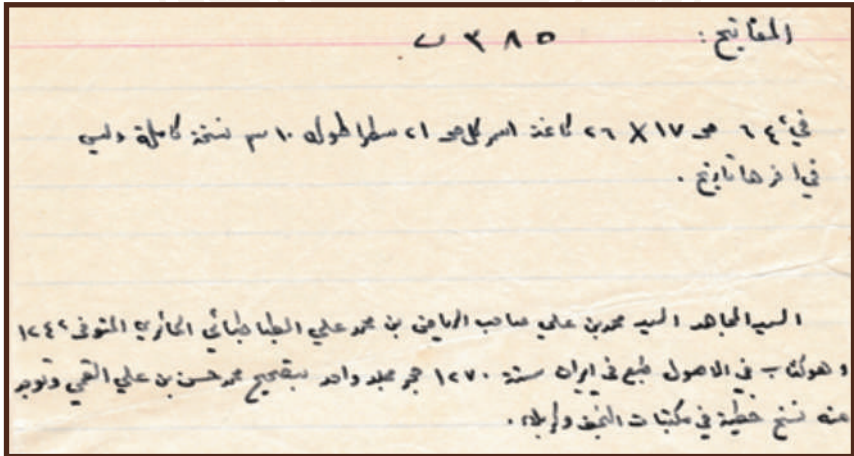 المفاتيح: ٣٨٥ ب
في ٦٤٢ ص ١٧ X ٢٦ كاغذ اسمر كل ص ٢١ سطرا طوله ١٠ سم نسخة كاملة وليس
في اخرها تاريخ .
السيد المجاهد السيد محمد بن علي صاحب الرياض بن محمد علي الطباطبائي الحائري المتوفى ١٢٤٢
وهو كتاب في الاصول طبع في ايران سنة ١٢٧٠ حجر مجلد واحد بتصحيح محمد حسن بن علي القمي وتوجد
منه نسخ خطية في مكتبات النجف وكربلاء .